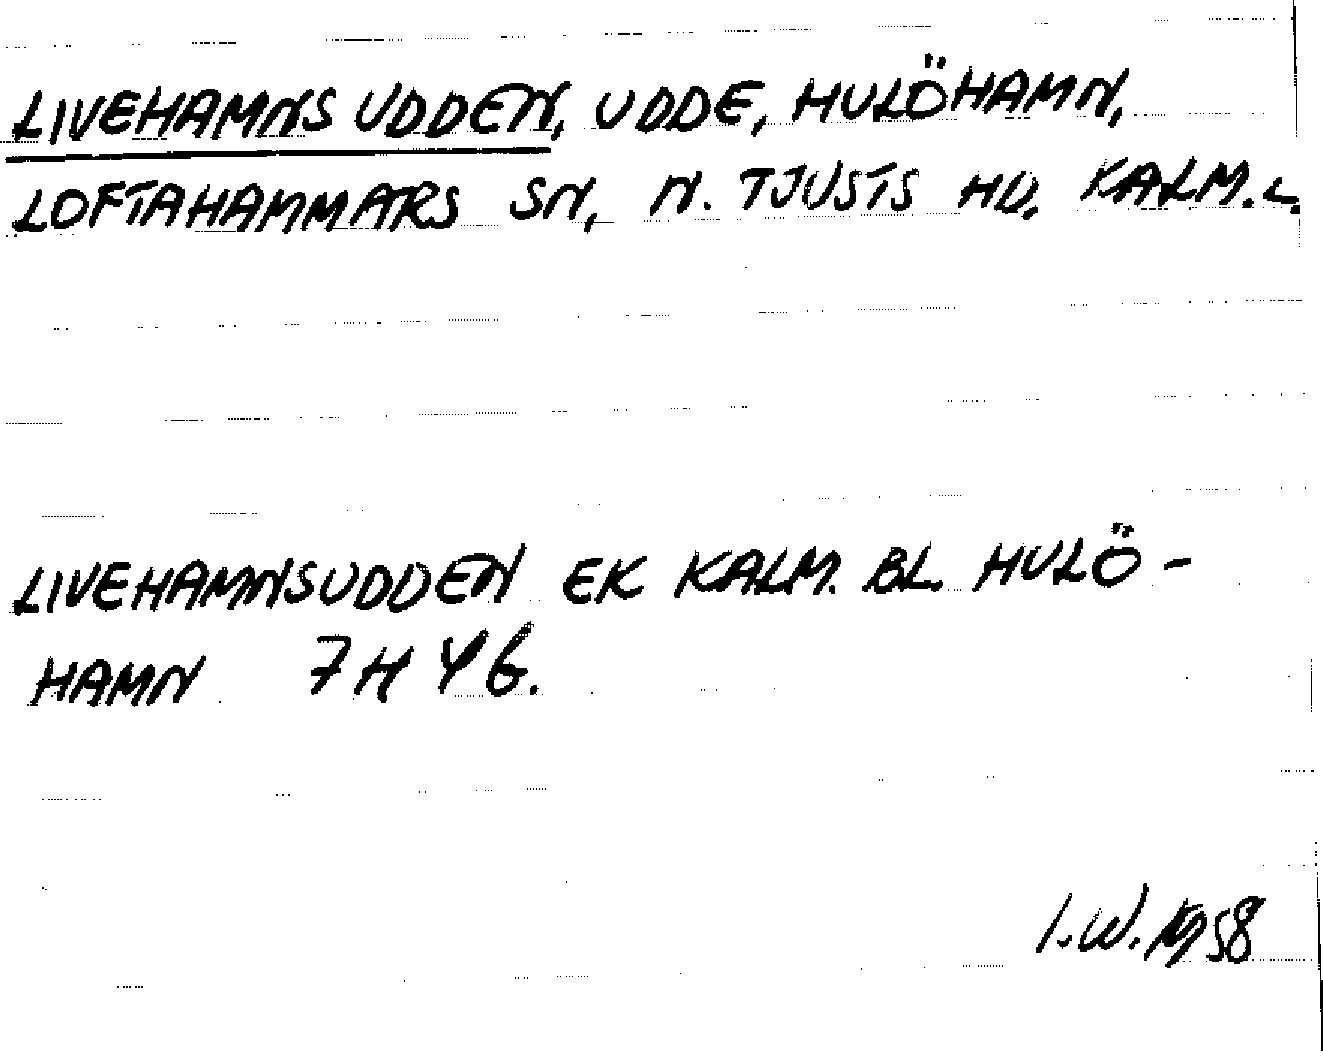 LIVEHAMNSUDDEN, UDDE, HULÖHAMN,
LOFTAHAMMARS SN, N. TJUSTS HD, KALM.L.
LIVEHAMNSUDDEN EK KALM. BL. HULÖ-
HAMN 7H4G.
I.W. 1958